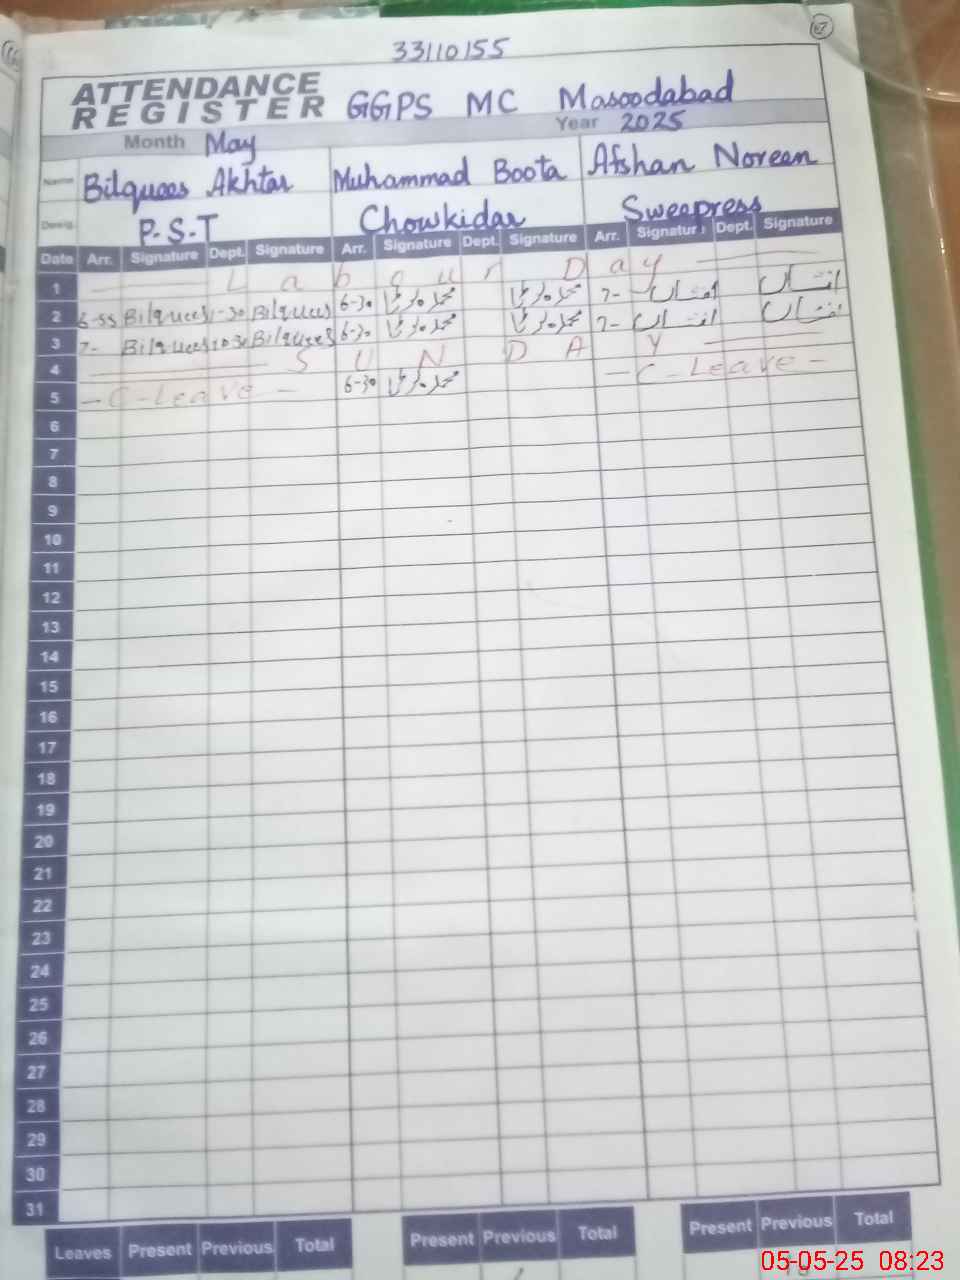 67
33110155
ATTENDANCE REGISTER GGPS MC Masoodabad
Month May Year 2025
Name Bilquees Akhtar Muhammad Boota Afshan Noreen
Desig. P.S.T Chowkidar Sweepress
Date Arr. Signature Dept. Signature Arr. Signature Dept. Signature Arr. Signature Dept. Signature
1 Labour Day
2 6-55 Bilquees 1-30 Bilquees 6-30 محمد بوٹا محمد بوٹا 7- افشاں افشاں
3 7- Bilquees Bilquees 6-30 محمد بوٹا محمد بوٹا 7- افشاں افشاں
4 SUNDAY
5 -C-Leave- 6-30 محمد بوٹا -C-Leave-
6
7
8
9
10
11
12
13
14
15
16
17
18
19
20
21
22
23
24
25
26
27
28
29
30
31
Leaves Present Previous Total Present Previous Total Present Previous Total
05-05-25 08:23